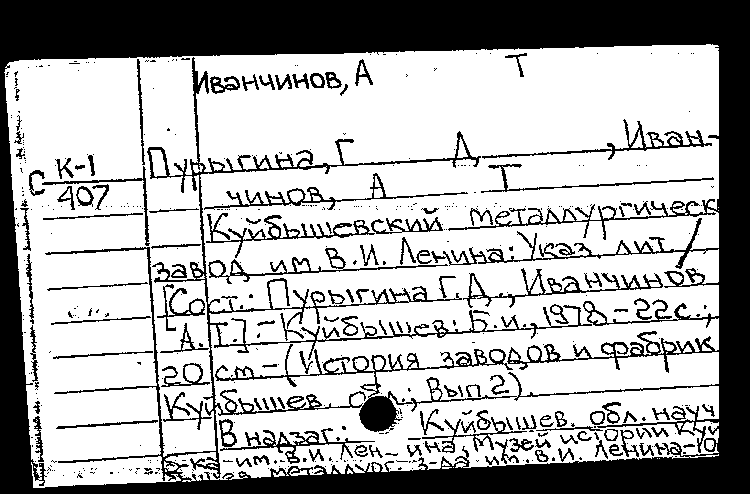 Иванчинов, А Т
Пурыгина, Г Д, , Иван-
С К-1
407
чинов, А Т
Куйбышевский металлургическ
завод им. В.И. Ленина: Указ. лит. /
[Сост.: Пурыгина Г.Д., Иванчинов
А.Т.].- Куйбышев: Б.и., 1978.- 22 с.;
20 см.- (История заводов и фабрик
Куйбышев. обл.; Вып. 2).
В надзаг.: Куйбышев. обл. науч
б-ка им. В.И. Ленина, Музей истории Куй
металлург. з-да им. В.И. Ленина.